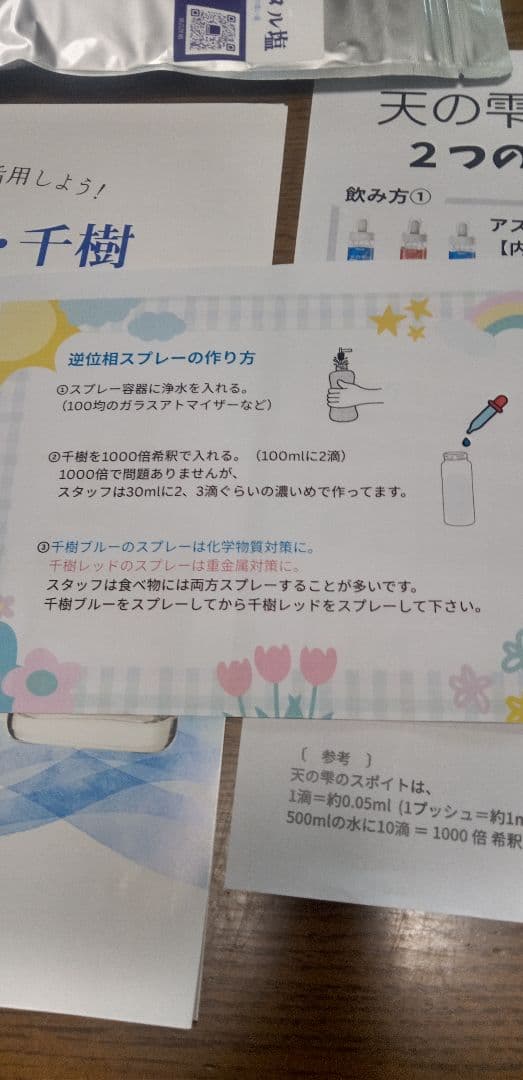 タル塩
活用しよう!
・千樹
天の雫
2つの
飲み方①
アス
【内
逆位相スプレーの作り方
①スプレー容器に浄水を入れる。
(100均のガラスアトマイザーなど)
②千樹を1000倍希釈で入れる。(100mlに2滴)
1000倍で問題ありませんが、
スタッフは30mlに2、3滴ぐらいの濃いめで作ってます。
③千樹ブルーのスプレーは化学物質対策に。
千樹レッドのスプレーは重金属対策に。
スタッフは食べ物には両方スプレーすることが多いです。
千樹ブルーをスプレーしてから千樹レッドをスプレーして下さい。
〔 参考 〕
天の雫のスポイトは、
1滴=約0.05ml (1プッシュ=約1m
500mlの水に10滴 = 1000 倍 希釈